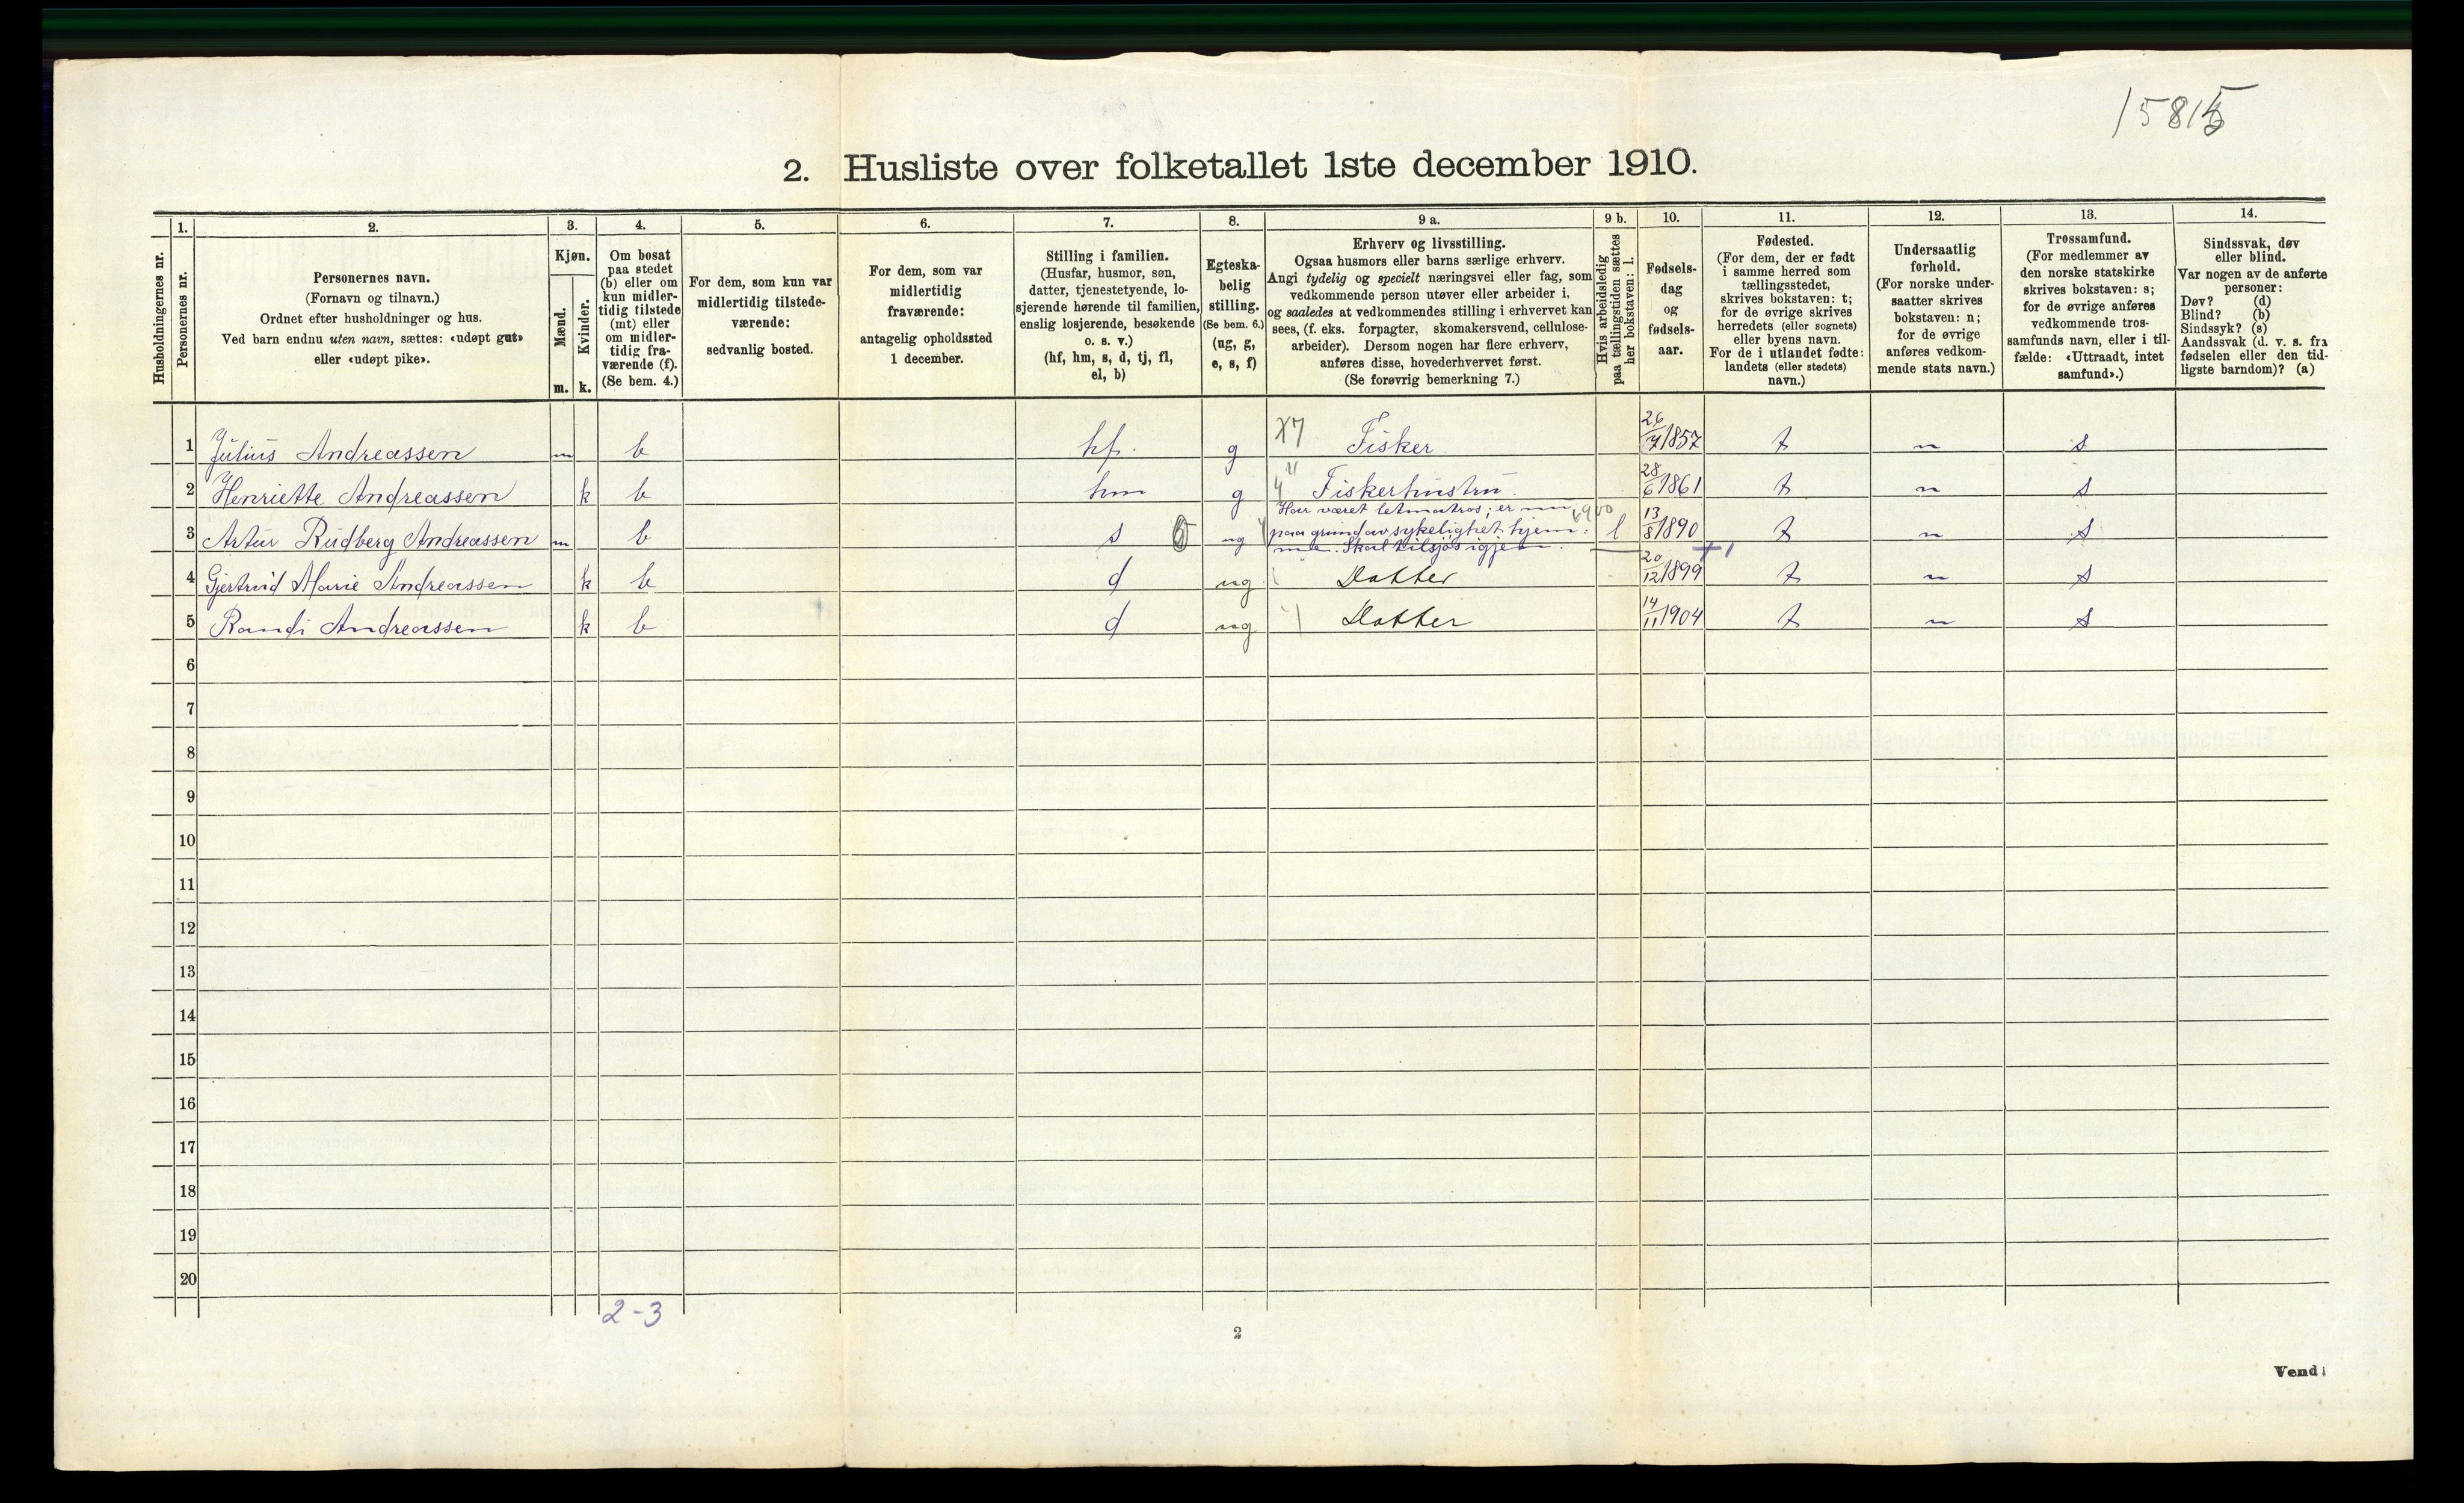 15815
2. Husliste over folketallet 1ste december 1910.
Husholdningernes nr.
1.
Personernes nr.
2.
Personernes navn.
(Fornavn og tilnavn.)
Ordnet efter husholdninger og hus.
Ved barn endnu uten navn, sættes: «udøpt gut»
eller «udøpt pike».
3.
Kjøn.
Mænd.
Kvinder.
m.
k.
4.
Om bosat
paa stedet
(b) eller om
kun midler-
tidig tilstede
(mt) eller
om midler-
tidig fra-
værende (f).
(Se bem. 4.)
5.
For dem, som kun var
midlertidig tilstede-
værende:
sedvanlig bosted.
6.
For dem, som var
midlertidig
fraværende:
antagelig opholdssted
1 december.
7.
Stilling i familien.
(Husfar, husmor, søn,
datter, tjenestetyende, lo-
sjerende hørende til familien,
enslig losjerende, besøkende
o. s. v.)
(hf, hm, s, d, tj, fl,
el, b)
8.
Egteska-
belig
stilling.
(Se bem. 6.)
(ug, g,
e, s, f)
9 a.
Erhverv og livsstilling.
Ogsaa husmors eller barns særlige erhverv.
Angi tydelig og specielt næringsvei eller fag, som
vedkommende person utøver eller arbeider i,
og saaledes at vedkommendes stilling i erhvervet kan
sees, (f. eks. forpagter, skomakersvend, cellulose-
arbeider). Dersom nogen har flere erhverv,
anføres disse, hovederhvervet først.
(Se forøvrig bemerkning 7.)
9 b.
Hvis arbeidsledig
paa tællingstiden sættes
her bokstaven: l.
10.
Fødsels-
dag
og
fødsels-
aar.
11.
Fødested.
(For dem, der er født
i samme herred som
tællingsstedet,
skrives bokstaven: t;
for de øvrige skrives
herredets (eller sognets)
eller byens navn.
For de i utlandet fødte:
landets (eller stedets)
navn.)
12.
Undersaatlig
forhold.
(For norske under-
saatter skrives
bokstaven: n;
for de øvrige
anføres vedkom-
mende stats navn.)
13.
Trossamfund.
(For medlemmer av
den norske statskirke
skrives bokstaven: s;
for de øvrige anføres
vedkommende tros-
samfunds navn, eller i til-
fælde: «Uttraadt, intet
samfund».)
14.
Sindssvak, døv
eller blind.
Var nogen av de anførte
personer:
Døv? (d)
Blind? (b)
Sindssyk? (s)
Aandssvak (d. v. s. fra
fødselen eller den tid-
ligste barndom)? (a)
1 Julius Andreassen m b hf. g Fisker 26/7 1857 t n s
2 Henriette Andreassen k b hm g Fiskerhustru. 28/6 1861 t n s
3 Artur Rudberg Andreassen m b s ug Har været letmatros; er nu
paa grund av sykelighet hjem: l 13/8 1890 t n s
me. Skal tilsjøs igjen.
4 Gjertrud Marie Andreassen k b d ug Datter 20/12 1899 t n s
5 Randi Andreassen k b d ug Datter 14/11 1904 t n s
6
7
8
9
10
11
12
13
14
15
16
17
18
19
20
2-3
2
Vend!